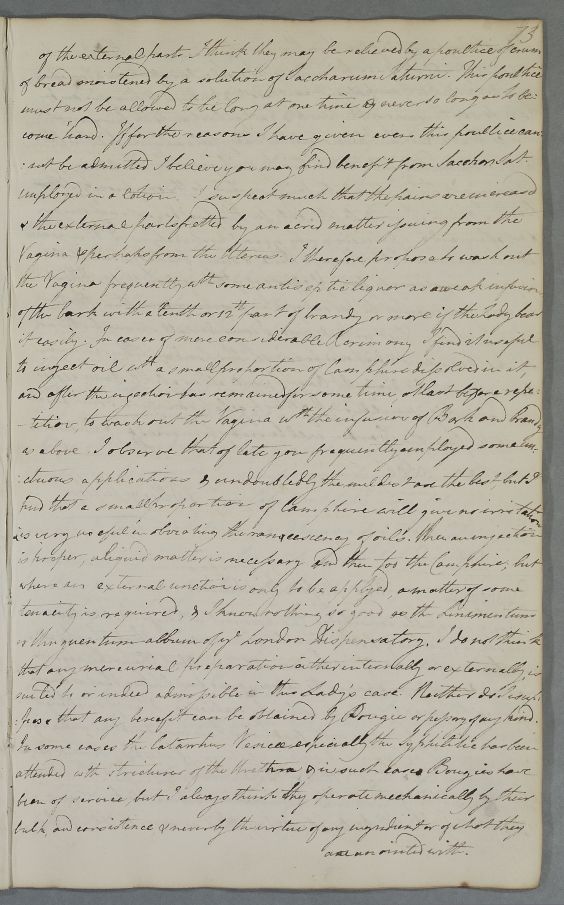 73
of the external parts I think they may be relieved by a poultice of crum
of bread moistened by a solution of Saccharum Saturni. This poultice
must not be allowed to lie long at one time & never so long as to be-
come hard. If for the reasons I have given even this poultice can-
:not be admitted I believe you may find benefit from Sacchar. Sat.
employed in a lotion. I suspect much that the pains are increased
& the external parts fretted by an acrid matter issuing from the
Vagina & perhaps from the Uterus. I therefore propose to wash out
the Vagina frequently wth some antiseptic liquor as a weak infusion
of the bark with a tenth or 12th part of brandy or more if the Lady bear
it easily. In cases of more considerable Acrimony I find it useful
to inject oil wth a small proportion of Camphire dissolved in it
and after the injection has remained for some time at least before a repe-
-tition, to wash out the Vagina wth the infusion of Bark and brandy
as above. I observe that of late you frequently employed some un-
:ctuous applications & undoubtedly the mildest are the best but I
find that a small proportion of Camphire will give no irritation
& is very useful in obviating the rancescency of oils. When an injection
is proper, a liquid matter is necessary and then for the Camphire; but
where an external unction is only to be applyed a matter of some
tenacity is required, & I know nothing so good as the Linimentum
or Unguentum album of ye London Dispensatory. I do not think
that any mercurial preparation either internally or externally is
suited to or indeed admissible in this Lady's case. Neither do I sup-
:pose that any benefit can be obtained by Bougie or pessary of any kind.
In some cases the Catarrhus Vesicæ especially the Syphilitic has been
attended with strictures of the Urethra & in such cases Bougies have
been of service but I always think they operate mechanically by their
bulk, and consistence & merely the virtue of any ingredient or of what they
are anointed with.